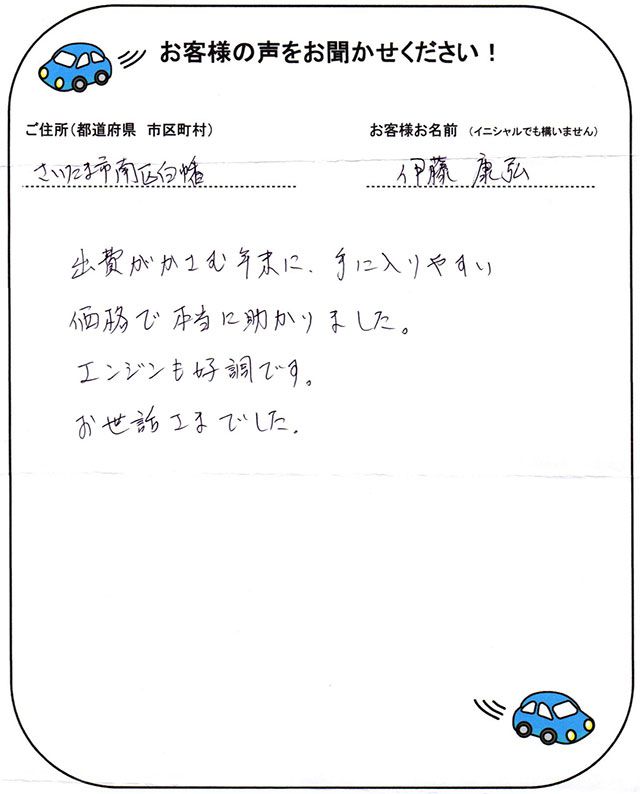 お客様の声をお聞かせください！
ご住所（都道府県　市区町村）　お客様お名前　（イニシャルでも構いません）
さいたま市南区白幡　伊藤 康弘
出費がかさむ年末に、手に入りやすい
価格で本当に助かりました。
エンジンも好調です。
お世話さまでした。